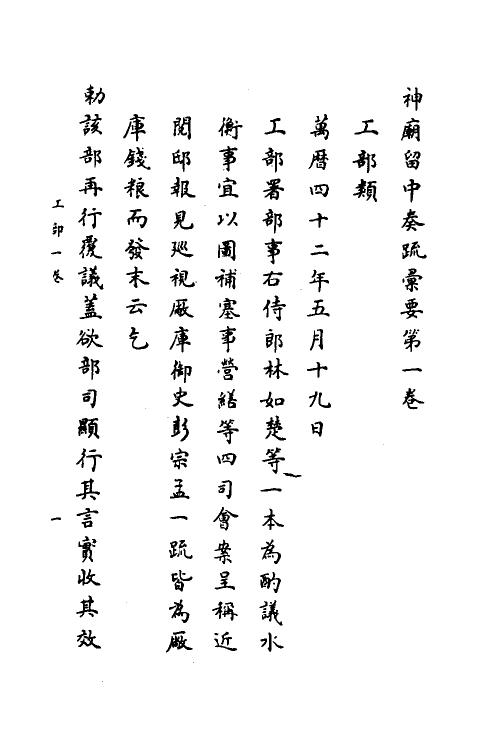 神廟留中奏疏彙要第一卷
工部類
萬曆四十二年五月十九日
工部署部事右侍郎林如楚等一本為酌議水
衡事宜以圖補塞事營繕等四司會案呈稱近
閱邸報見巡視厰庫御史彭宗孟一疏皆為厰
庫錢粮而發末云乞
勅該部再行覆議蓋欲部司顯行其言實收其效
工部一卷
一